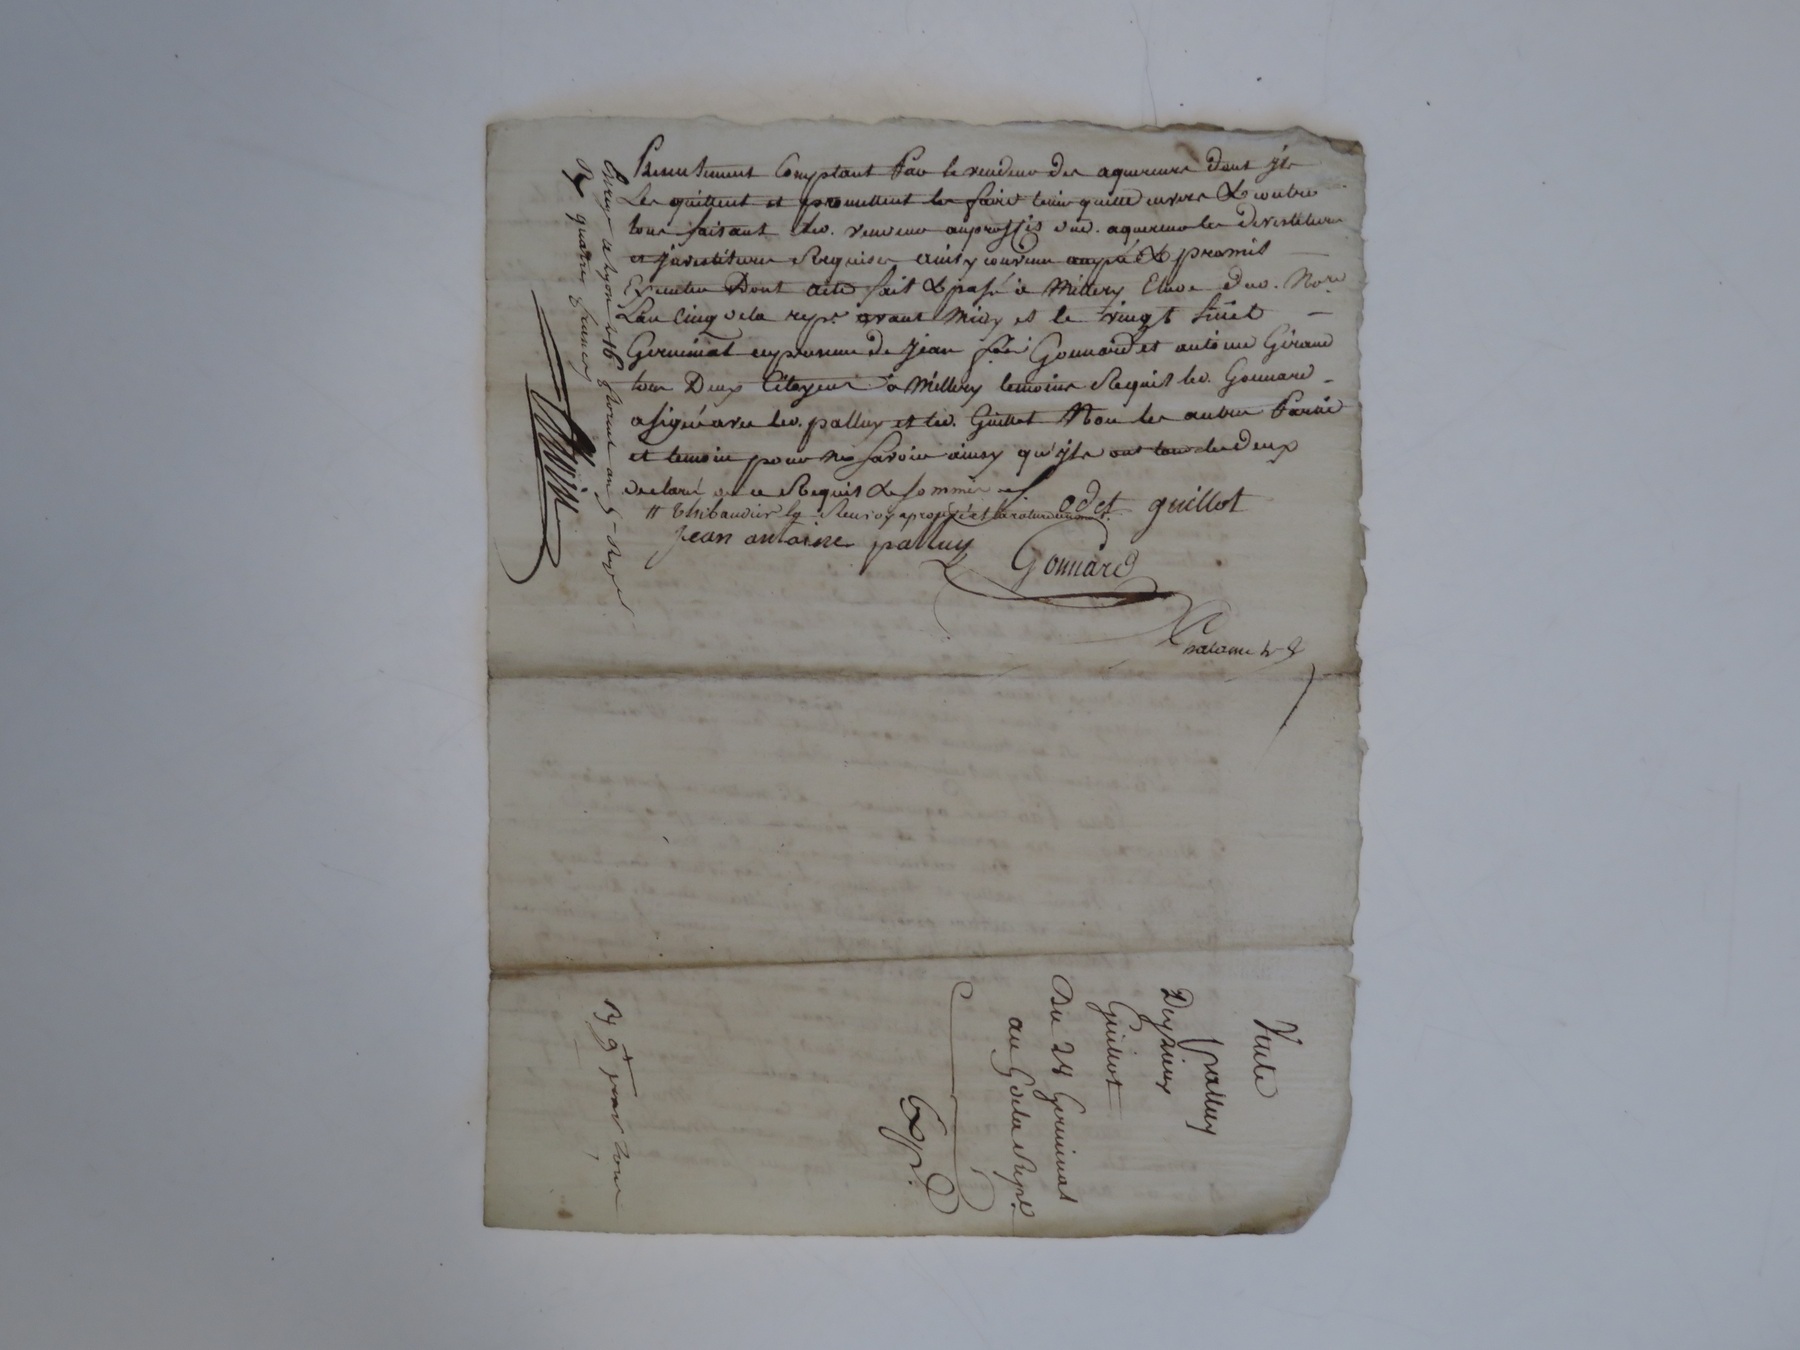 Presentement Comptant Par le vendeur des aquereurs dont yls
Les quittent et promettent les faire tenir quitte envers & contre
tous faisant led. vendeur auproffis dud. aquereur les devestiture
et jnvestiture Requises ainsy convenu accepté & promis
Executer Dont acte fait & passé à Millery Etude dud. No.re
L'an Cinq de la rep.e avant Midy et le vingt huit
Germinal en presence de Jean Gonnard et antoine Giraud
tous Deux Citoyens à Millery temoins Requis led. Gonnard
a signé avec led. palluy et led. Guillot Non les autres Partie
et temoin pour ne savoir ainsy qu'yls ont tous les deux
declaré de ce Requis & sommés
odet guillot
// Thibaudier
jean antoine palluy
Gonnard
Enreg. a Lyon le 16 floreal an 5
R quatre francs
Vente
palluy
Deyrieux
Guillot
Du 28 Germinal
an 5 de la Rep.e
Exp.on
pour tout